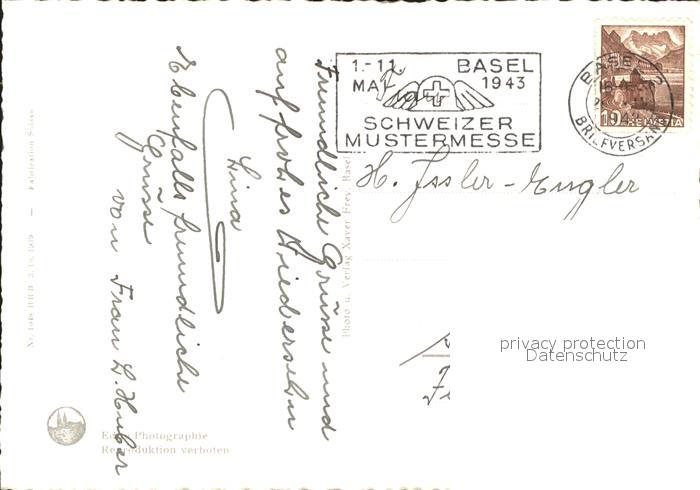 Freundliche Grüsse und
auf frohes Wiedersehn
Lina
Ebenfalls freundliche
Grüsse
von Frau L. Huber
1.-11.
MAI
BASEL
1943
SCHWEIZER
MUSTERMESSE
BASEL 2
BRIEFVERSAND
10 HELVETIA
H. Issler-Engler
Photo u. Verlag Xaver Frey, Basel
privacy protection
Datenschutz
Echte Photographie
Reproduktion verboten
Fabrication Suisse